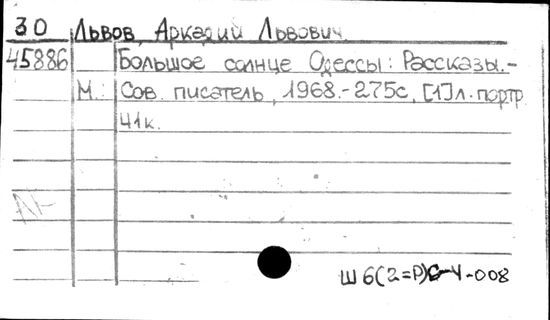 30 Львов, Аркадий Львович.
45886 Большое солнце Одессы: Рассказы.-
М.: Сов. писатель, 1968.-275с, [1]л. портр
41к.
Ш6(2=Р)
-008